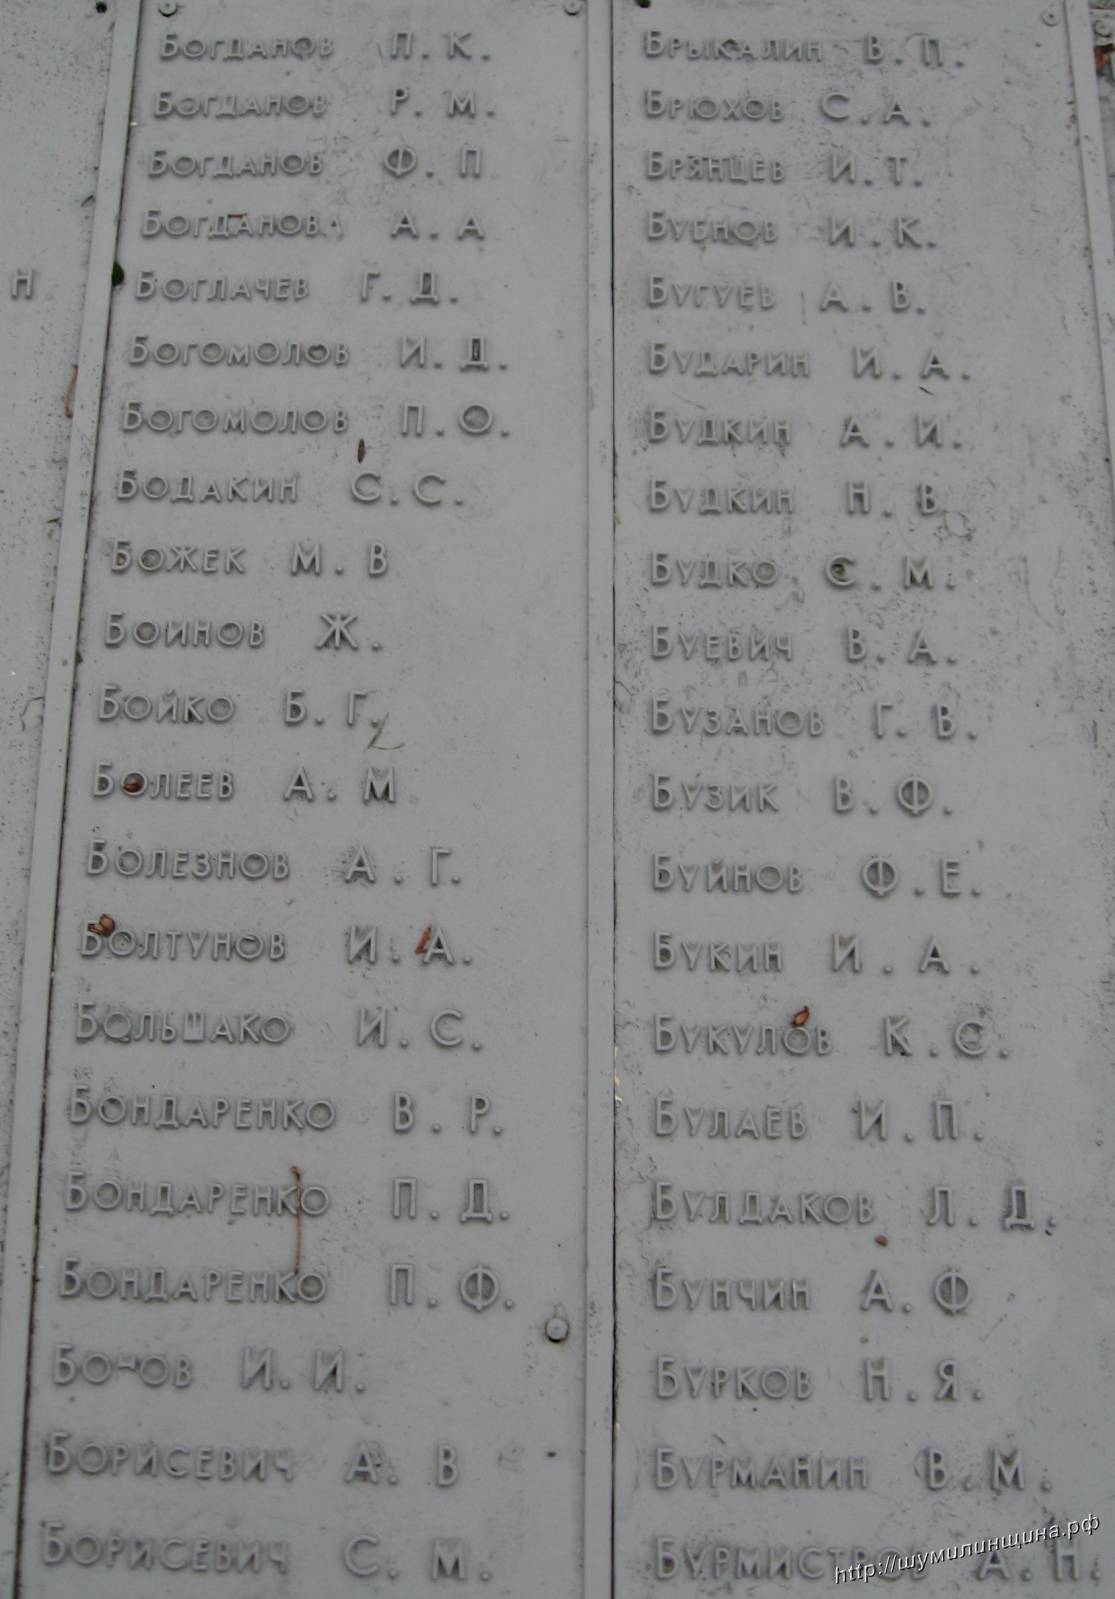 Богданов П. К.
Богданов Р. М.
Богданов Ф. П
Богданова А. А
Боглачев Г. Д.
Богомолов И. Д.
Богомолов П. О.
Бодакин С. С.
Божек М. В
Боинов Ж.
Бойко Б. Г.
Болеев А. М
Болезнов А. Г.
Болтунов И. А.
Большако И. С.
Бондаренко В. Р.
Бондаренко П. Д.
Бондаренко П. Ф.
И. И.
Борисевич А. В
Борисевич С. М.
Брыкалин В. П.
Брюхов С. А.
Брянцев И. Т.
Бубнов И. К.
Бугуев А. В.
Бударин И. А.
Будкин А. И.
Будкин Н. В
Будко С. М.
Буевич В. А.
Бузанов Г. В.
Бузик В. Ф.
Буйнов Ф. Е.
Букин И. А.
Букулов К. С.
Булаев И. П.
Булдаков Л. Д.
Бунчин А. Ф
Бурков Н. Я.
Бурманин В. М.
Бурмистров А. Н.
н
http://шумилинщина.рф